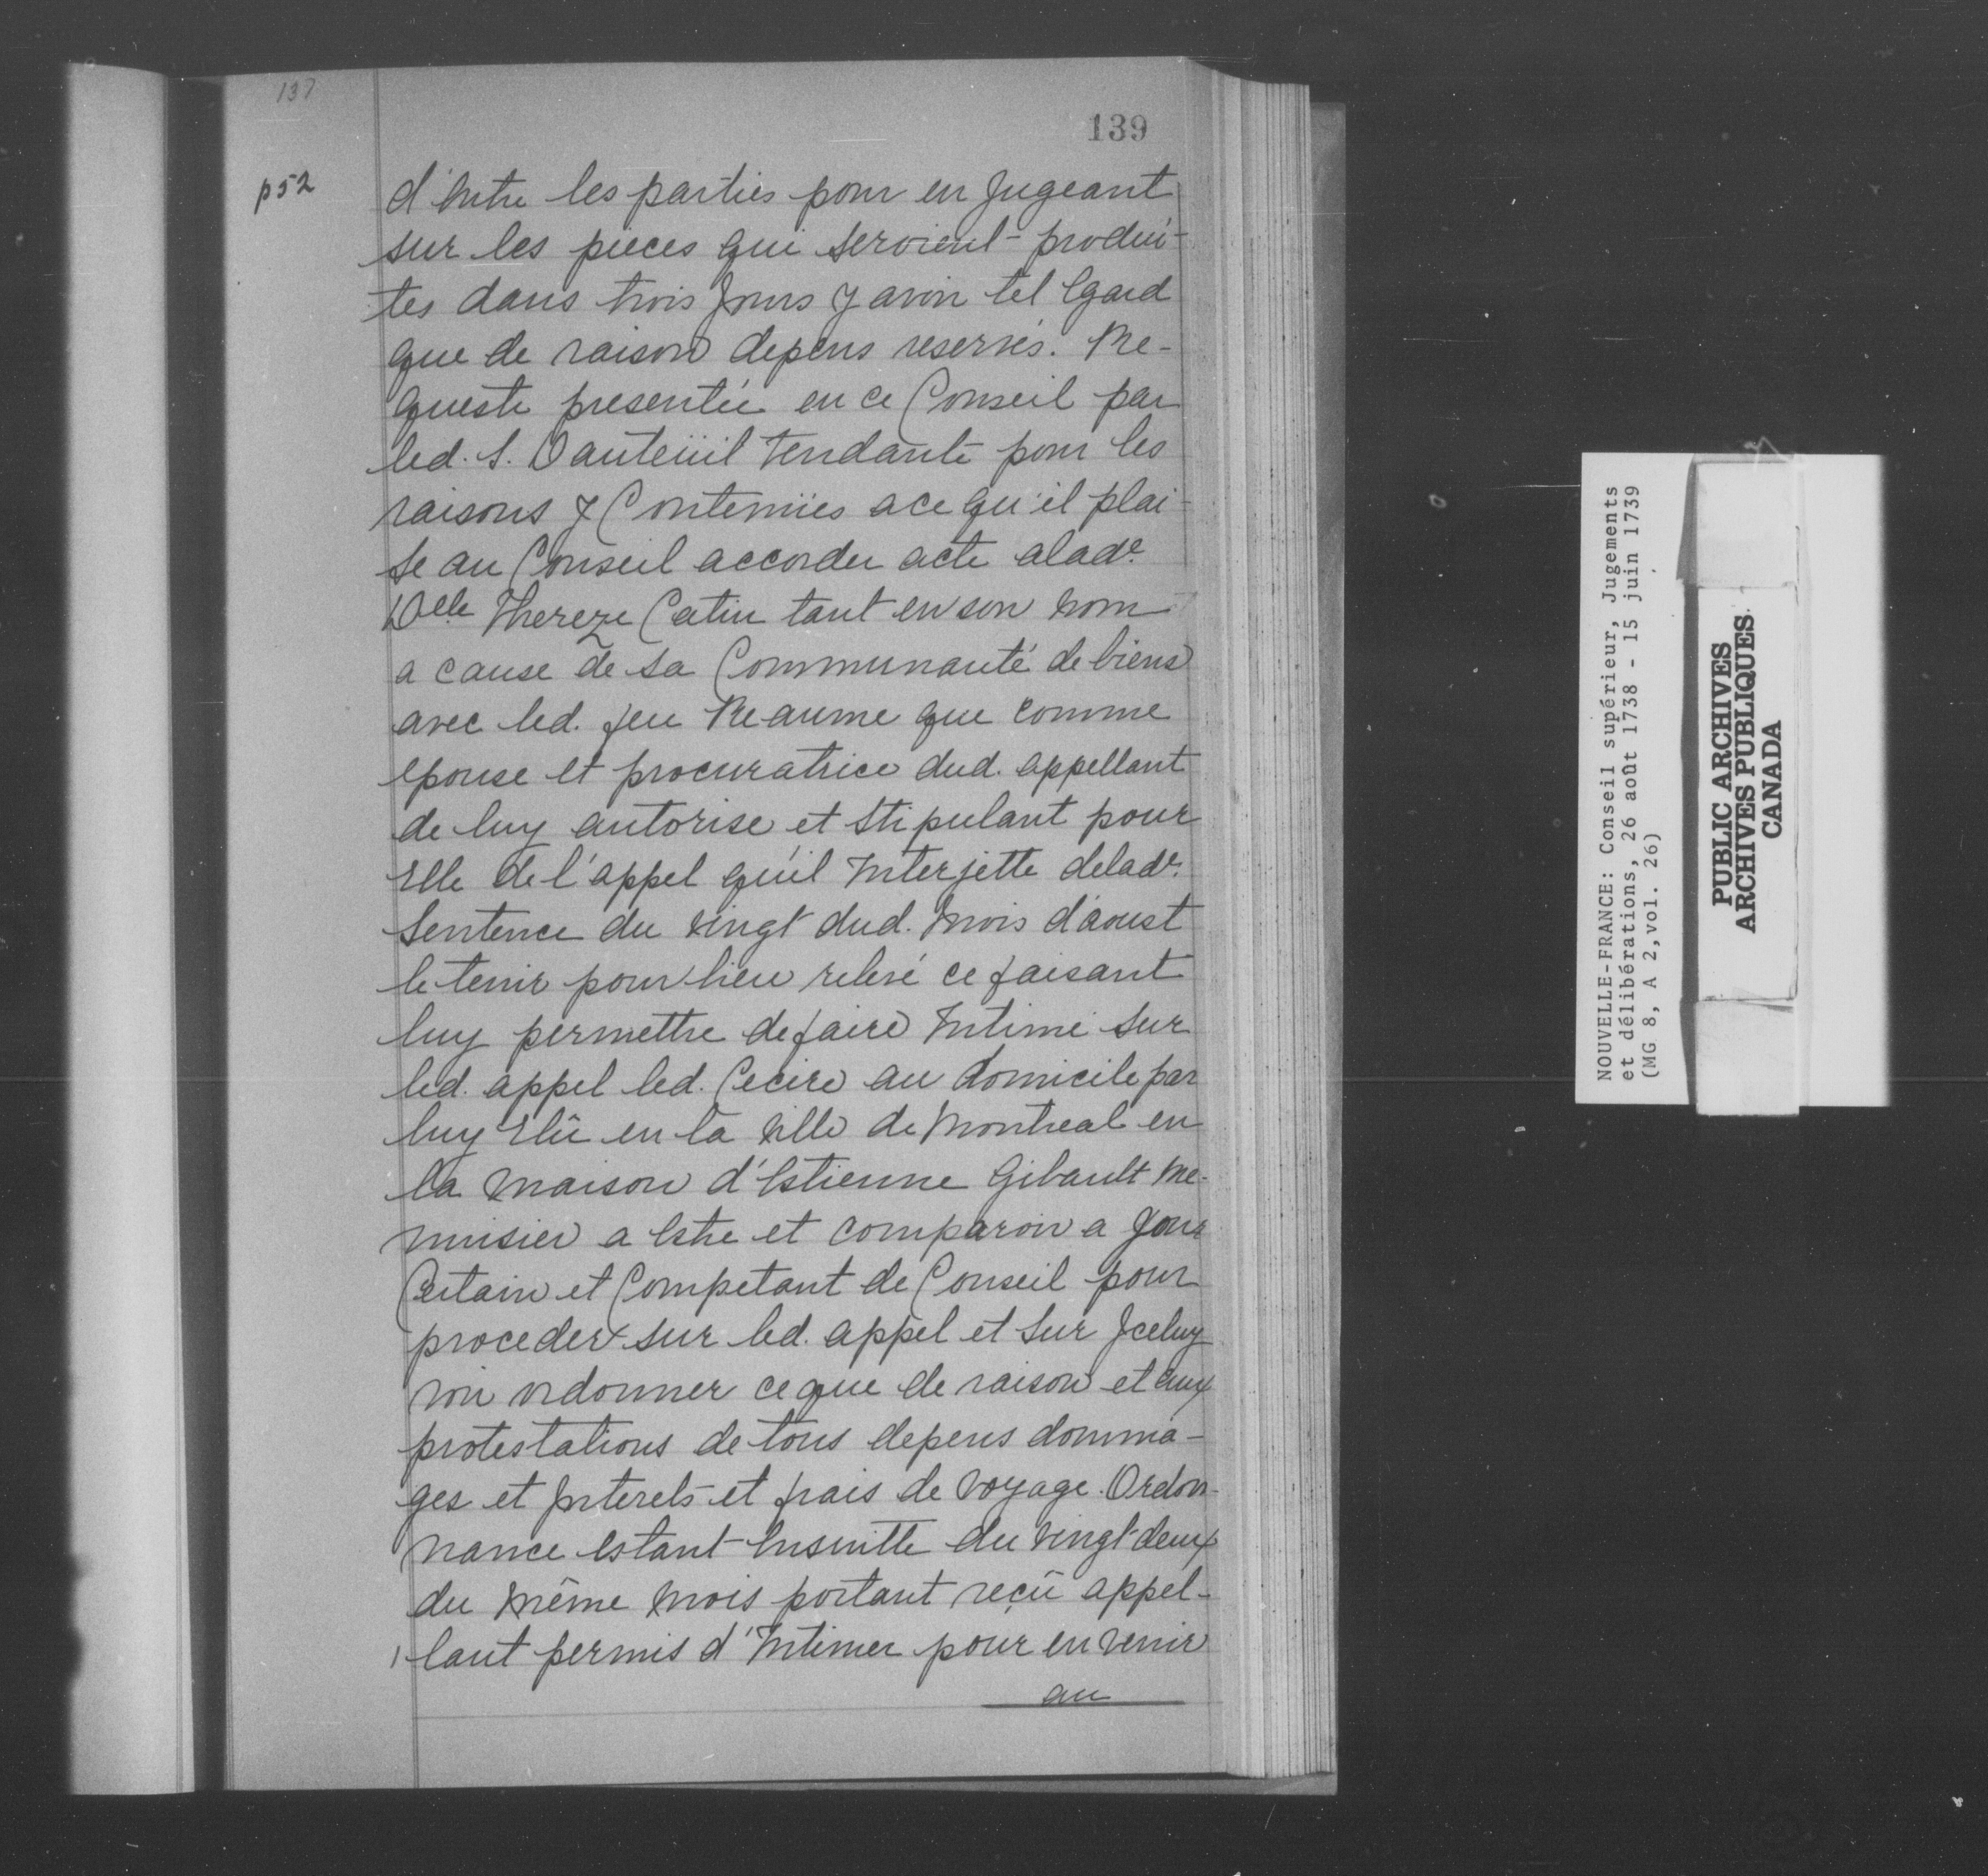 137
139
p52
d'Entre les parties pour en Jugeant
sur les pieces qui servient produi-
tes dans trois Jours y avoir tel Egard
que de raison depens reservés. Re-
queste presentée en ce Conseil par
led. S. Dauteüil tendante pour les
raisons y Contenües a ce qu'il plai-
se au Conseil accorder acte alade.
Delle Thereze Catin tant en son nom
a cause de sa Communauté de biens
avec led. feu Reaume que comme
epouse et procuratrice dud. appellant
de luy autorisé et stipulant pour
Elle de l'appel qu'il Interjette delade.
Sentence du vingt dud. mois d'aoust
le tenir pour bien relevé ce faisant
luy permettre de faire Intimé sur
led. appel led. Cecire au domicile par
luy Elû en la ville de Montreal en
la maison d'Estienne Gibault Me-
nuisier a Estre et comparoir a Jour
Certain et Competant de Conseil pour
proceder sur led. appel et sur Iceluy
voir ordonner ce que de raison et aux
protestations de tous depens domma-
ges et Interets et frais de voyage. Ordon-
nance estant Ensuitte du vingt deux
du même mois portant reçû appel-
lant permis d'Intimer pour en venir
au
NOUVELLE-FRANCE: Conseil supérieur, Jugements
et délibérations, 26 août 1738 - 15 juin 1739
(MG 8, A 2,vol. 26)
PUBLIC ARCHIVES
ARCHIVES PUBLIQUES
CANADA